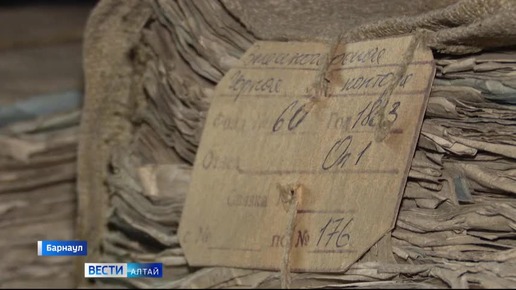 Горная контора
Фонд № 60 Год 1833
Отдел Оп 1
Связка №
с № по № 176
Барнаул
ВЕСТИ АЛТАЙ